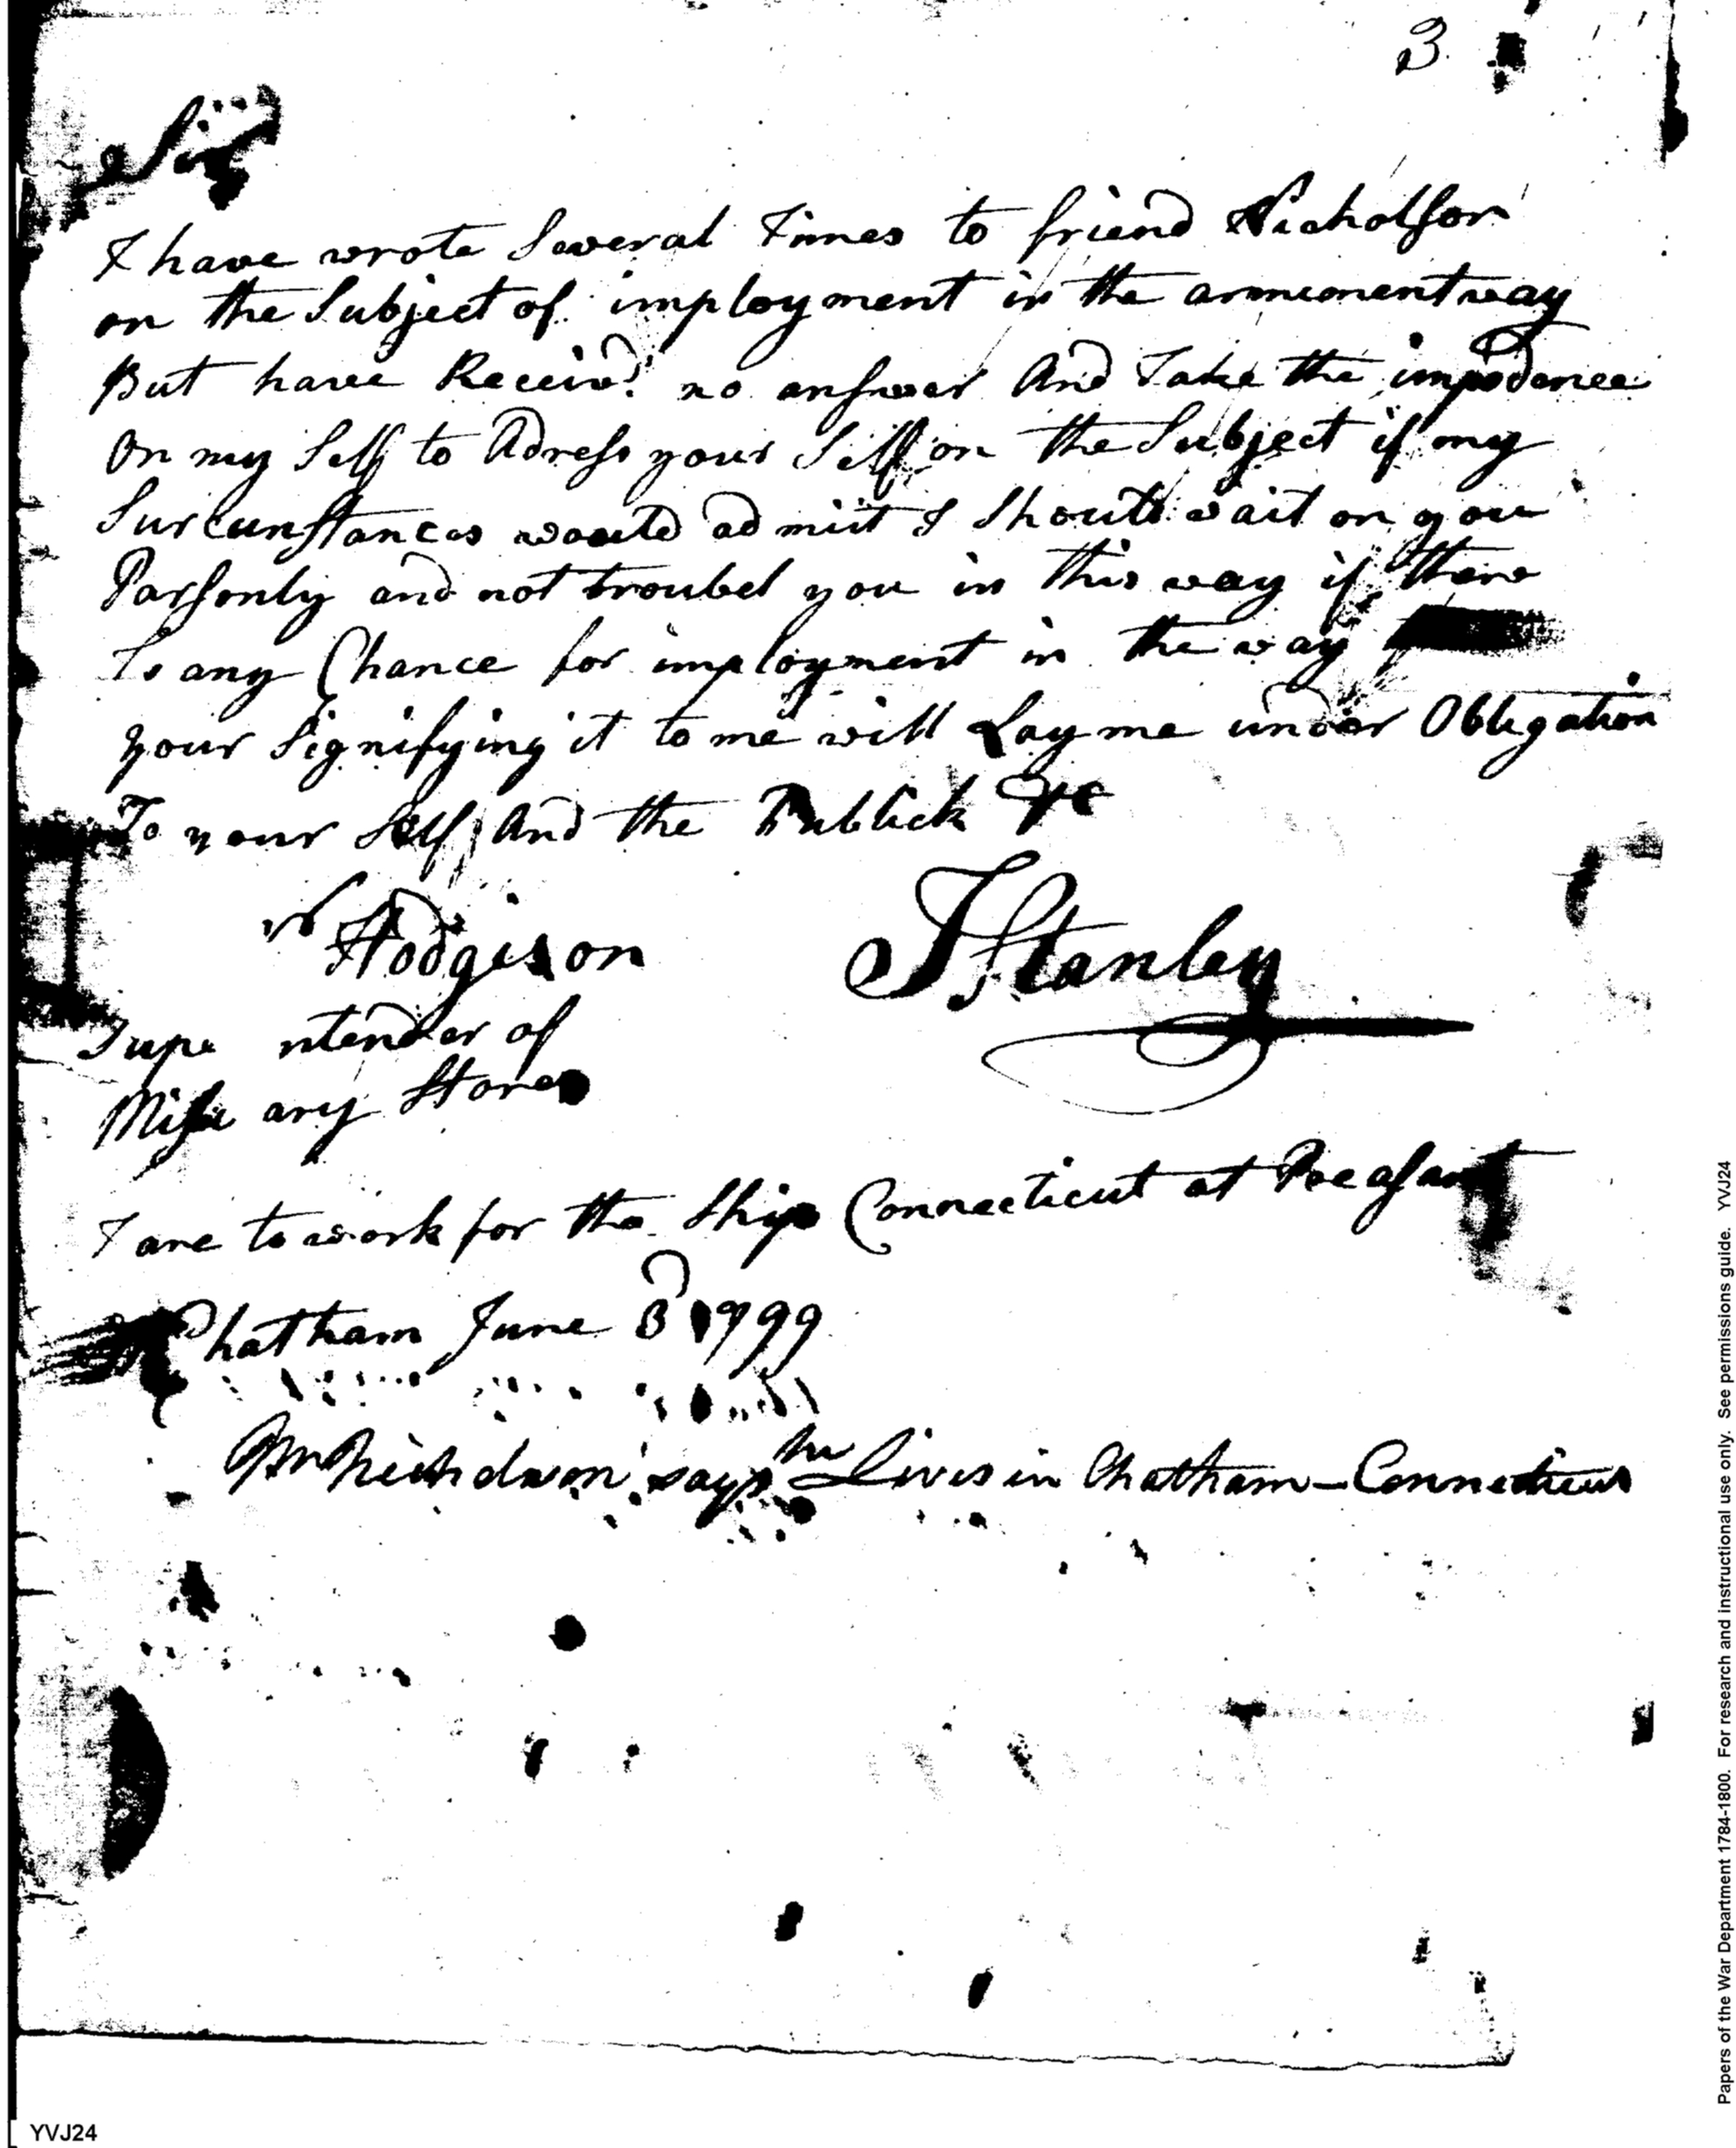 3
Sir
I have wrote Several Times to friend Nicholson
on the Subject of imployment in the armement way
But have Receivd no answer And Take the impodence
On my Self to Adress your Self on the Subject if my
Surcunstances would admit I Should wait on you
Parsonly and not troubel you in this way if there
Is any Chance for imployment in the way
your Signifying it to me will Lay me under Obligation
To your Self And the Publick &c
Hodgison
J Stanley
Supe ntender of
Milit ary Stores
I are to work for the Ship Connecticut at Preasant
Chatham June 3d 1799
says he lives in Chatham - Connecticut
Papers of the War Department 1784-1800. For research and instructional use only. See permissions guide. YVJ24
YVJ24